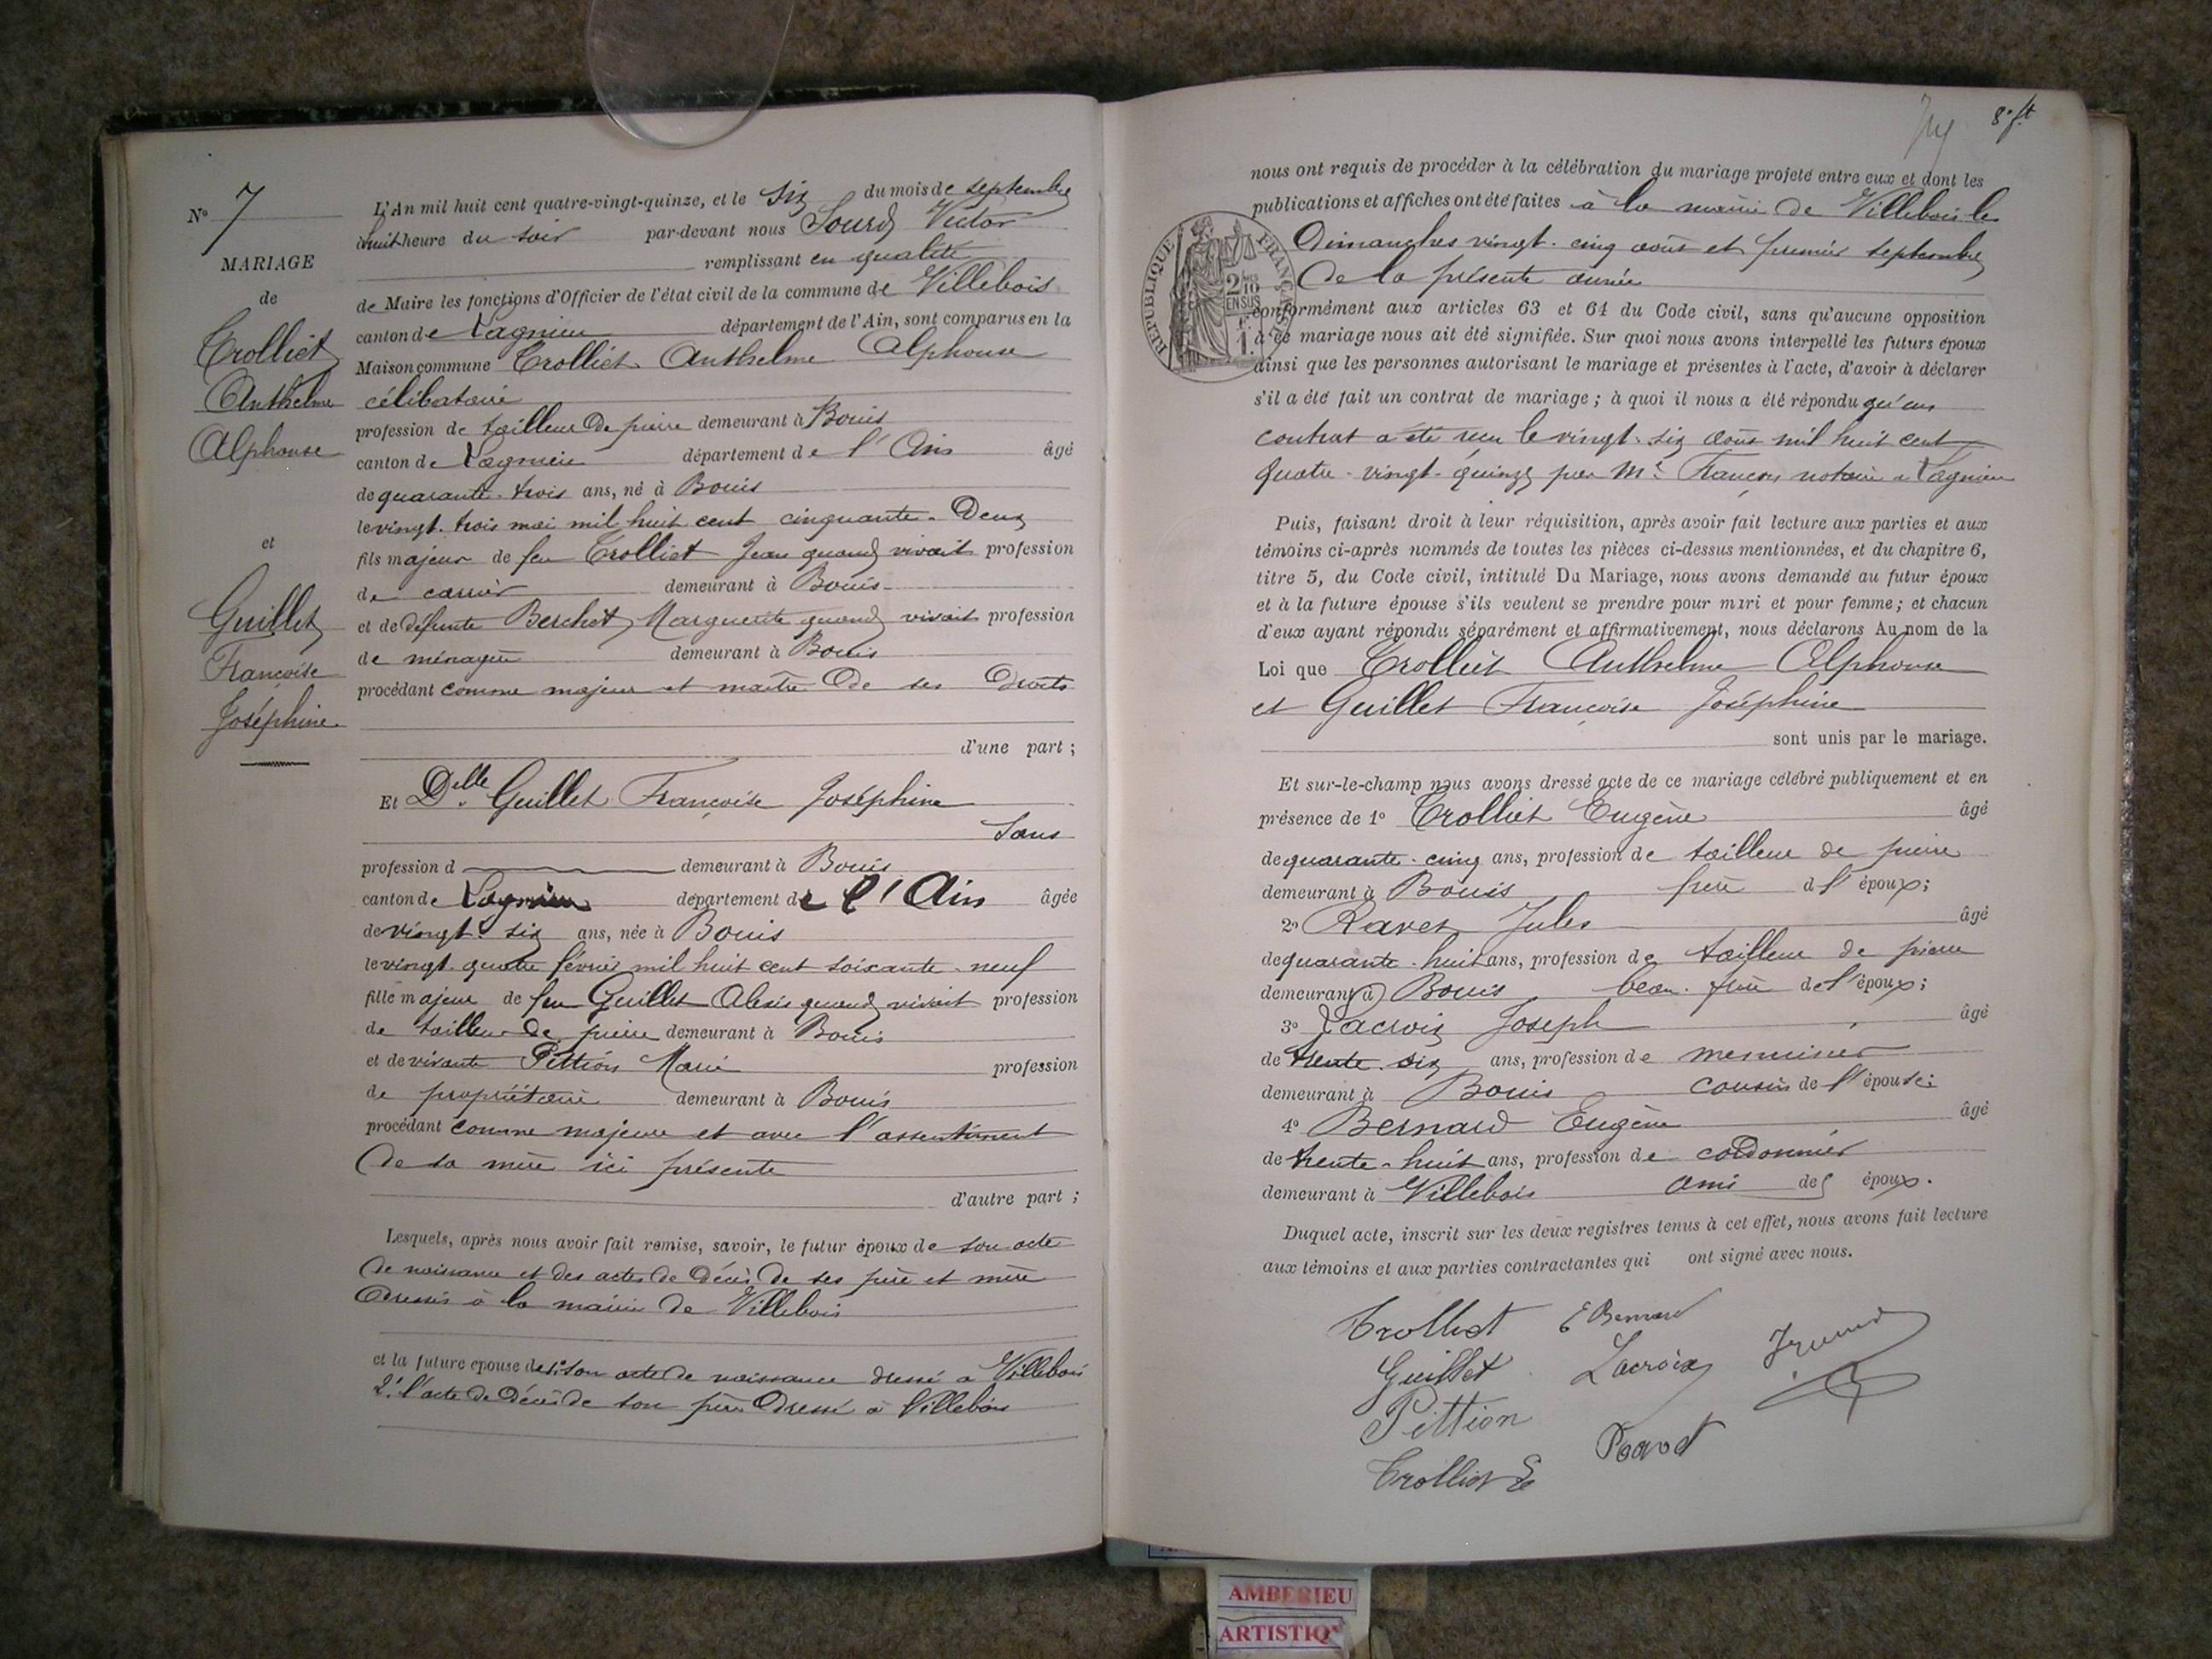 N° 7
MARIAGE
de
Trolliet
Anthelme
Alphonse
et
Guillet
Françoise
Joséphine.
L'An mil huit cent quatre-vingt-quinze, et le Six du mois de septembre
à huit heure du soir par-devant nous Sourd Victor
remplissant en qualité
de Maire les fonctions d'Officier de l'état civil de la commune de Villebois
canton de Lagnieu département de l'Ain, sont comparus en la
Maison commune Trolliet Anthelme Alphonse
célibataire
profession de tailleur de pierre demeurant à Bouis
canton de Lagnieu département de l'Ain âgé
de quarante-trois ans, né à Bouis
le vingt-trois mai mil huit cent cinquante-deux
fils majeur de feu Trolliet Jean quand vivait profession
de carrier demeurant à Bouis
et de défunte Berchet Marguerite quand vivait profession
de ménagère demeurant à Bouis
procédant comme majeur et maître de ses droits
d'une part ;
Et Delle Guillet Françoise Joséphine
Sans
profession d demeurant à Bouis
canton de Lagnieu département de l'Ain âgée
de vingt-six ans, née à Bouis
le vingt-quatre février mil huit cent soixante-neuf
fille majeure de feu Guillet Alexis quand vivait profession
de tailleur de pierre demeurant à Bouis
et de vivante Pittion Marie profession
de propriétaire demeurant à Bouis
procédant comme majeure et avec l'assentiment
de sa mère ici présente
d'autre part ;
Lesquels, après nous avoir fait remise, savoir, le futur époux de son acte
de naissance et des actes de décès de ses père et mère
dressés à la mairie de Villebois
et la future épouse de 1° son acte de naissance dressé à Villebois
2° l'acte de décès de son père dressé à Villebois
8e ft
nous ont requis de procéder à la célébration du mariage projeté entre eux et dont les
publications et affiches ont été faites à la mairie de Villebois les
dimanches vingt-cinq août et premier septembre
de la présente année
RÉPUBLIQUE FRANÇAISE
2/10 EN SUS
1 F.
conformément aux articles 63 et 64 du Code civil, sans qu'aucune opposition
à ce mariage nous ait été signifiée. Sur quoi nous avons interpellé les futurs époux
ainsi que les personnes autorisant le mariage et présentes à l'acte, d'avoir à déclarer
s'il a été fait un contrat de mariage ; à quoi il nous a été répondu qu'un
contrat a été reçu le vingt-six août mil huit cent
quatre-vingt-quinze par Me Françon notaire à Lagnieu
Puis, faisant droit à leur réquisition, après avoir fait lecture aux parties et aux
témoins ci-après nommés de toutes les pièces ci-dessus mentionnées, et du chapitre 6,
titre 5, du Code civil, intitulé Du Mariage, nous avons demandé au futur époux
et à la future épouse s'ils veulent se prendre pour mari et pour femme ; et chacun
d'eux ayant répondu séparément et affirmativement, nous déclarons Au nom de la
Loi que Trolliet Anthelme Alphonse
et Guillet Françoise Joséphine
sont unis par le mariage.
Et sur-le-champ nous avons dressé acte de ce mariage célébré publiquement et en
présence de 1° Trolliet Eugène âgé
de quarante-cinq ans, profession de tailleur de pierre
demeurant à Bouis frère de l'époux ;
2° Ravet Jules âgé
de quarante-huit ans, profession de tailleur de pierre
demeurant à Bouis beau-frère de l'époux ;
3° Lacroix Joseph âgé
de trente-six ans, profession de menuisier
demeurant à Bouis cousin de l'épouse ;
4° Bernard Eugène âgé
de trente-huit ans, profession de cordonnier
demeurant à Villebois ami des époux.
Duquel acte, inscrit sur les deux registres tenus à cet effet, nous avons fait lecture
aux témoins et aux parties contractantes qui ont signé avec nous.
Trolliet E Bernard
Guillet Lacroix
Pittion
Trolliet Ravet
AMBERIEU
ARTISTIQ